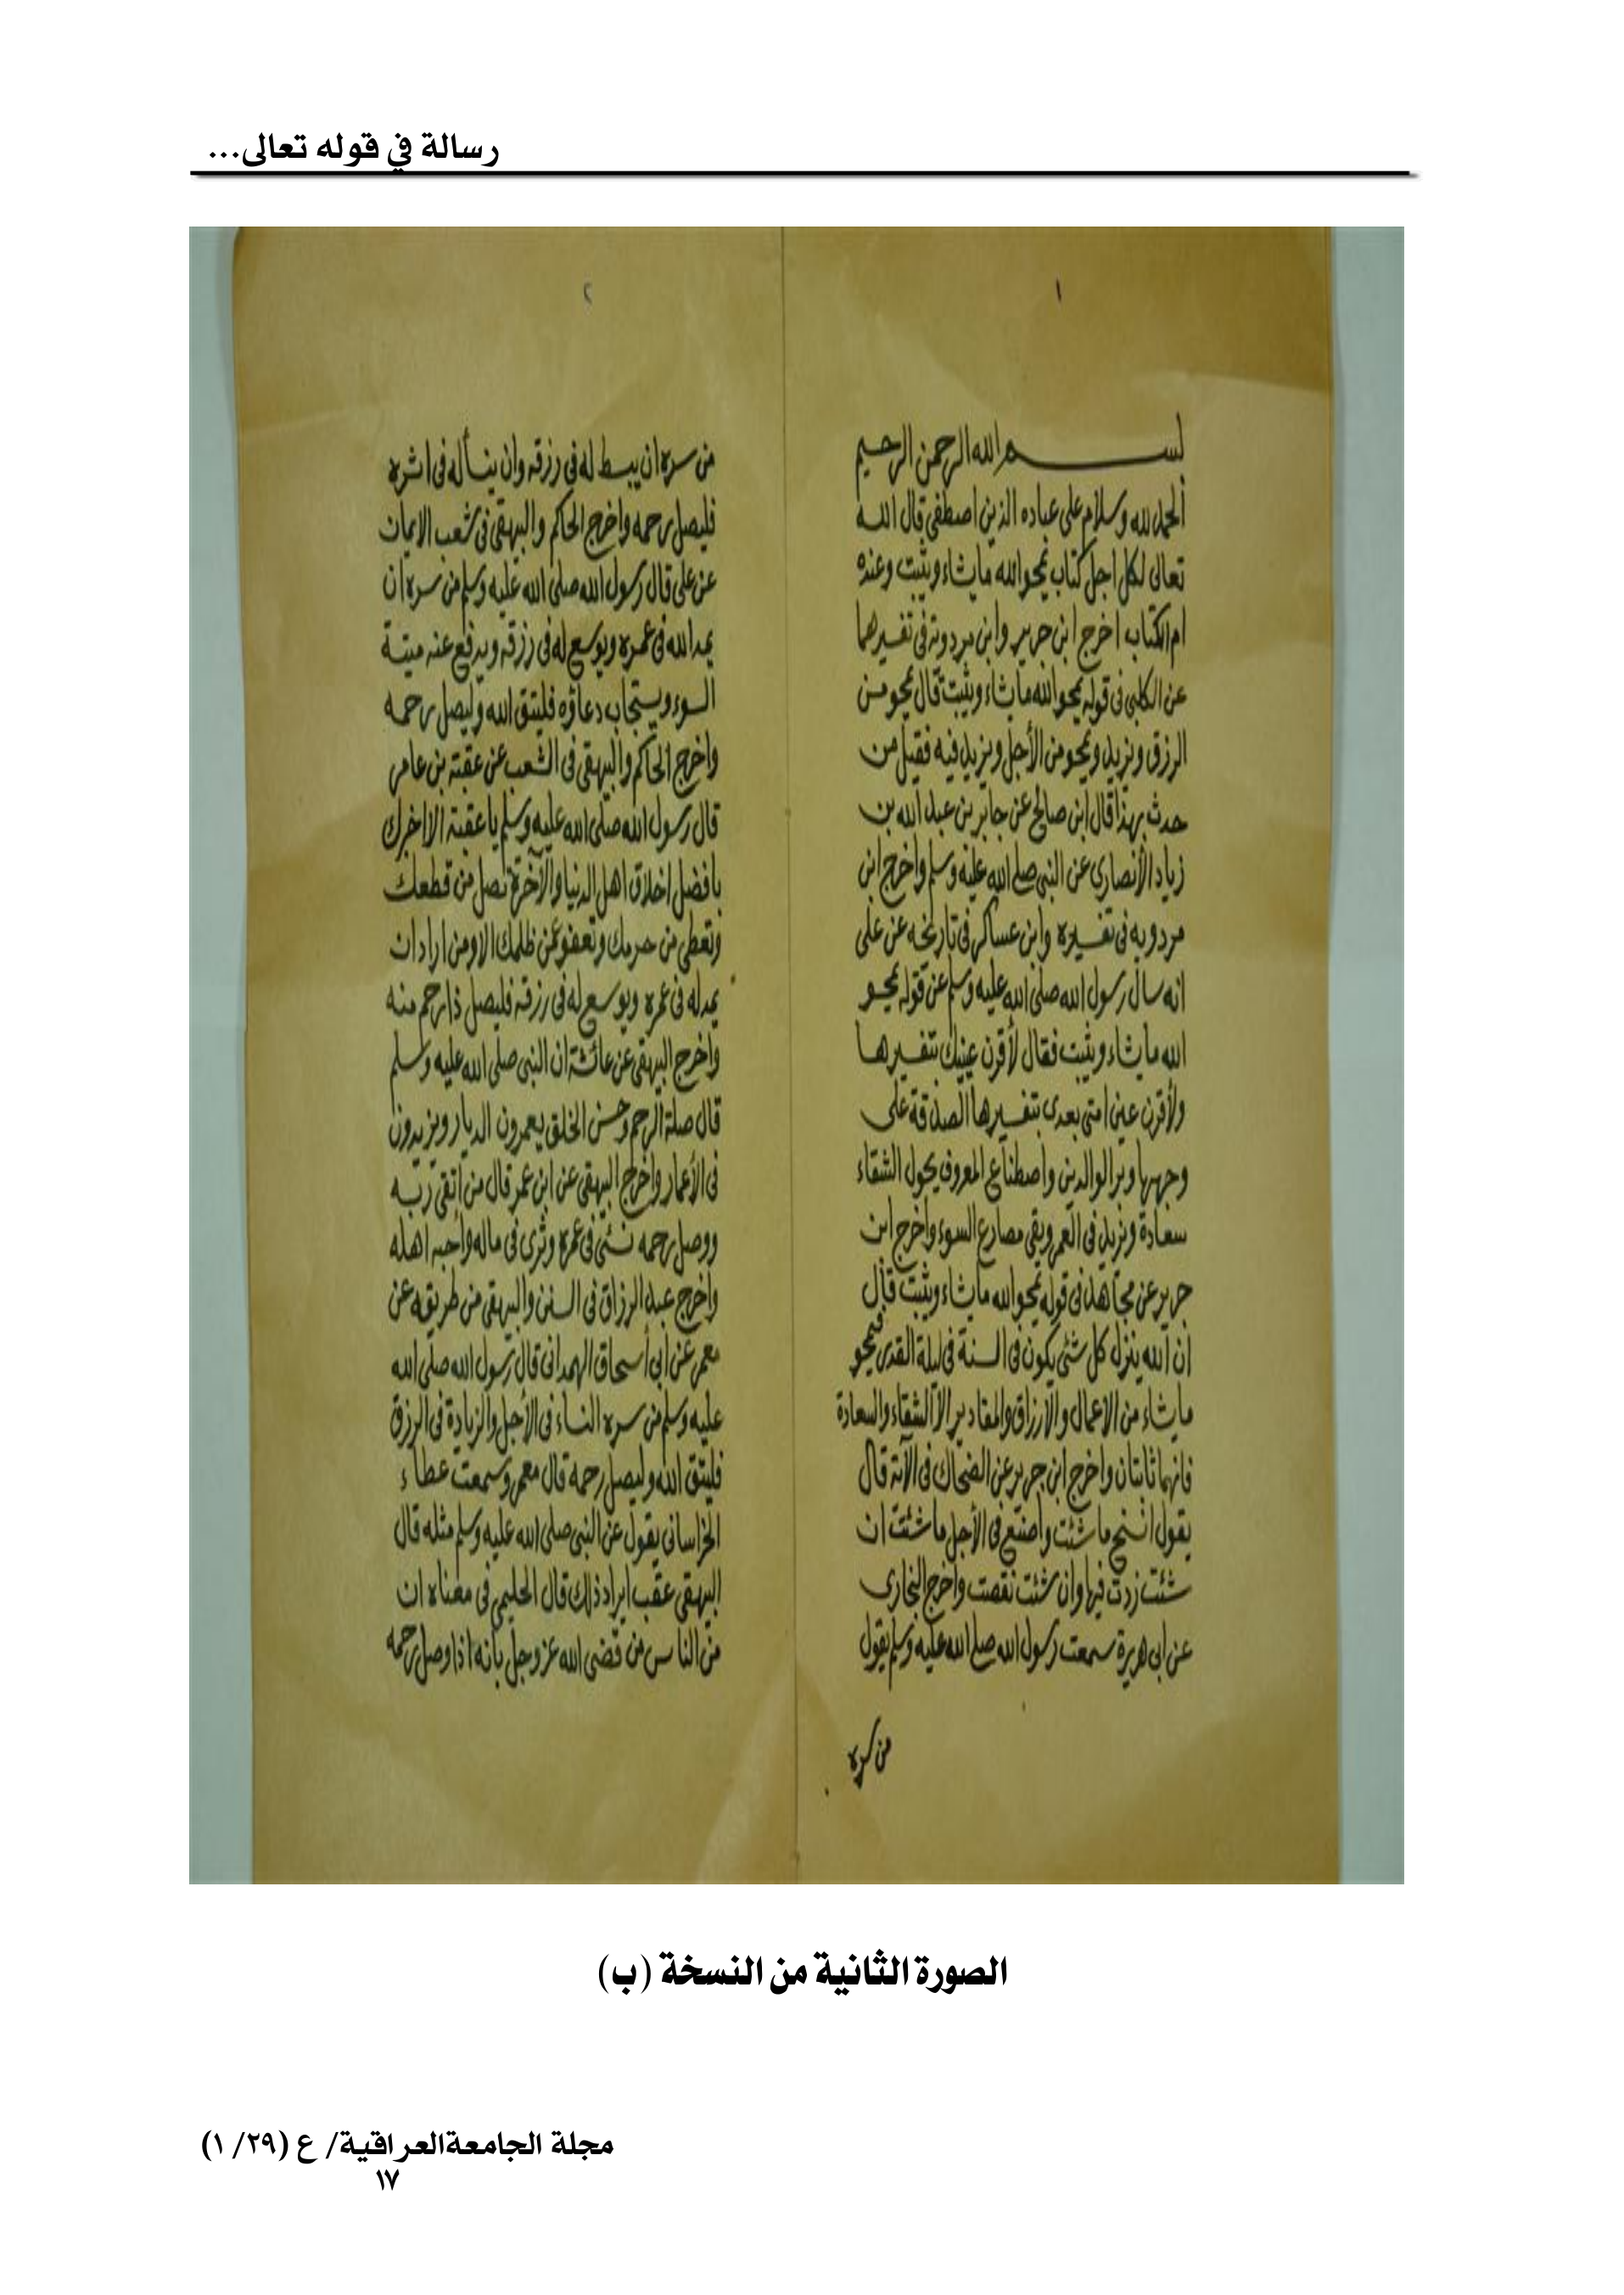 رسالة في قوله تعالى...
١
بسم الله الرحمن الرحيم
الحمد لله وسلام على عباده الذين اصطفى قال الله
تعالى لكل اجل كتاب يمحو الله ما يشاء ويثبت وعنده
ام الكتاب اخرج ابن جرير وابن مردوية فى تفسيرهما
عن الكلبى فى قوله يمحو الله ما يشاء ويثبت قال يمحو من
الرزق ويزيد ويمحو من الأجل ويزيد فيه فقيل من
حدث بهذا قال ابن صالح عن جابر بن عبد الله بن
زياد الأنصارى عن النبى صلى الله عليه وسلم واخرج ابن
مردويه فى تفسيره وابن عساكر فى تاريخه عن على
انه سأل رسول الله صلى الله عليه وسلم عن قوله يمحو
الله ما يشاء ويثبت فقال لأقرن عينيك بتفسيرها
ولأقرن عين امتى بعدى بتفسيرها الصدقة على
وجهها وبر الوالدين واصطناع المعروف يحول الشقاء
سعادة ويزيد فى العمر ويقى مصارع السوء واخرج ابن
جرير عن مجاهد فى قوله يمحو الله ما يشاء ويثبت قال
ان الله ينزل كل شئ يكون فى السنة فى ليلة القدر فيمحو
ما يشاء من الاعمال والأرزاق والمقادير الا الشقاء والسعادة
فانهما ثابتان واخرج ابن جرير عن الضحاك فى الآية قال
يقول انسخ ما شئت واصنع فى الأجل ما شئت ان
شئت زدت فيها وان شئت نقصت واخرج البخارى
عن ابى هريرة سمعت رسول الله صلى الله عليه وسلم يقول
من سره
٢
من سره ان يبسط له فى رزقه وان ينسأ له فى اثره
فليصل رحمه واخرج الحاكم والبيهقى فى شعب الايمان
عن على قال رسول الله صلى الله عليه وسلم من سره ان
يمد الله فى عمره ويوسع له فى رزقه ويدفع عنه ميتة
السوء ويستجاب دعاؤه فليتق الله وليصل رحمه
واخرج الحاكم والبيهقى فى الشعب عن عقبة بن عامر
قال رسول الله صلى الله عليه وسلم يا عقبة الا اخبرك
بافضل اخلاق اهل الدنيا والآخرة تصل من قطعك
وتعطى من حرمك وتعفو عمن ظلمك الا ومن اراد ان
يمد له فى عمره ويوسع له فى رزقه فليصل ذا رحم منه
واخرج البيهقى عن عائشة ان النبى صلى الله عليه وسلم
قال صلة الرحم وحسن الخلق يعمرون الديار ويزيدون
فى الأعمار واخرج البيهقى عن ابن عمر قال من اتقى ربه
ووصل رحمه نسئ فى عمره وثرى فى ماله واحبه اهله
واخرج عبد الرزاق فى السنن والبيهقى من طريقه عن
معمر عن ابى أسحاق الهمدانى قال رسول الله صلى الله
عليه وسلم من سره النساء فى الأجل والزيادة فى الرزق
فليتق الله وليصل رحمه قال معمر وسمعت عطاء
الخراسانى يقول عن النبى صلى الله عليه وسلم مثله قال
البيهقى عقب ايراد ذلك قال الحليمى فى معناه ان
من الناس من قضى الله عز وجل بأنه اذا وصل رحمه
الصورة الثانية من النسخة (ب)
مجلة الجامعة العراقية/ ع (٢٩/ ١)
١٧